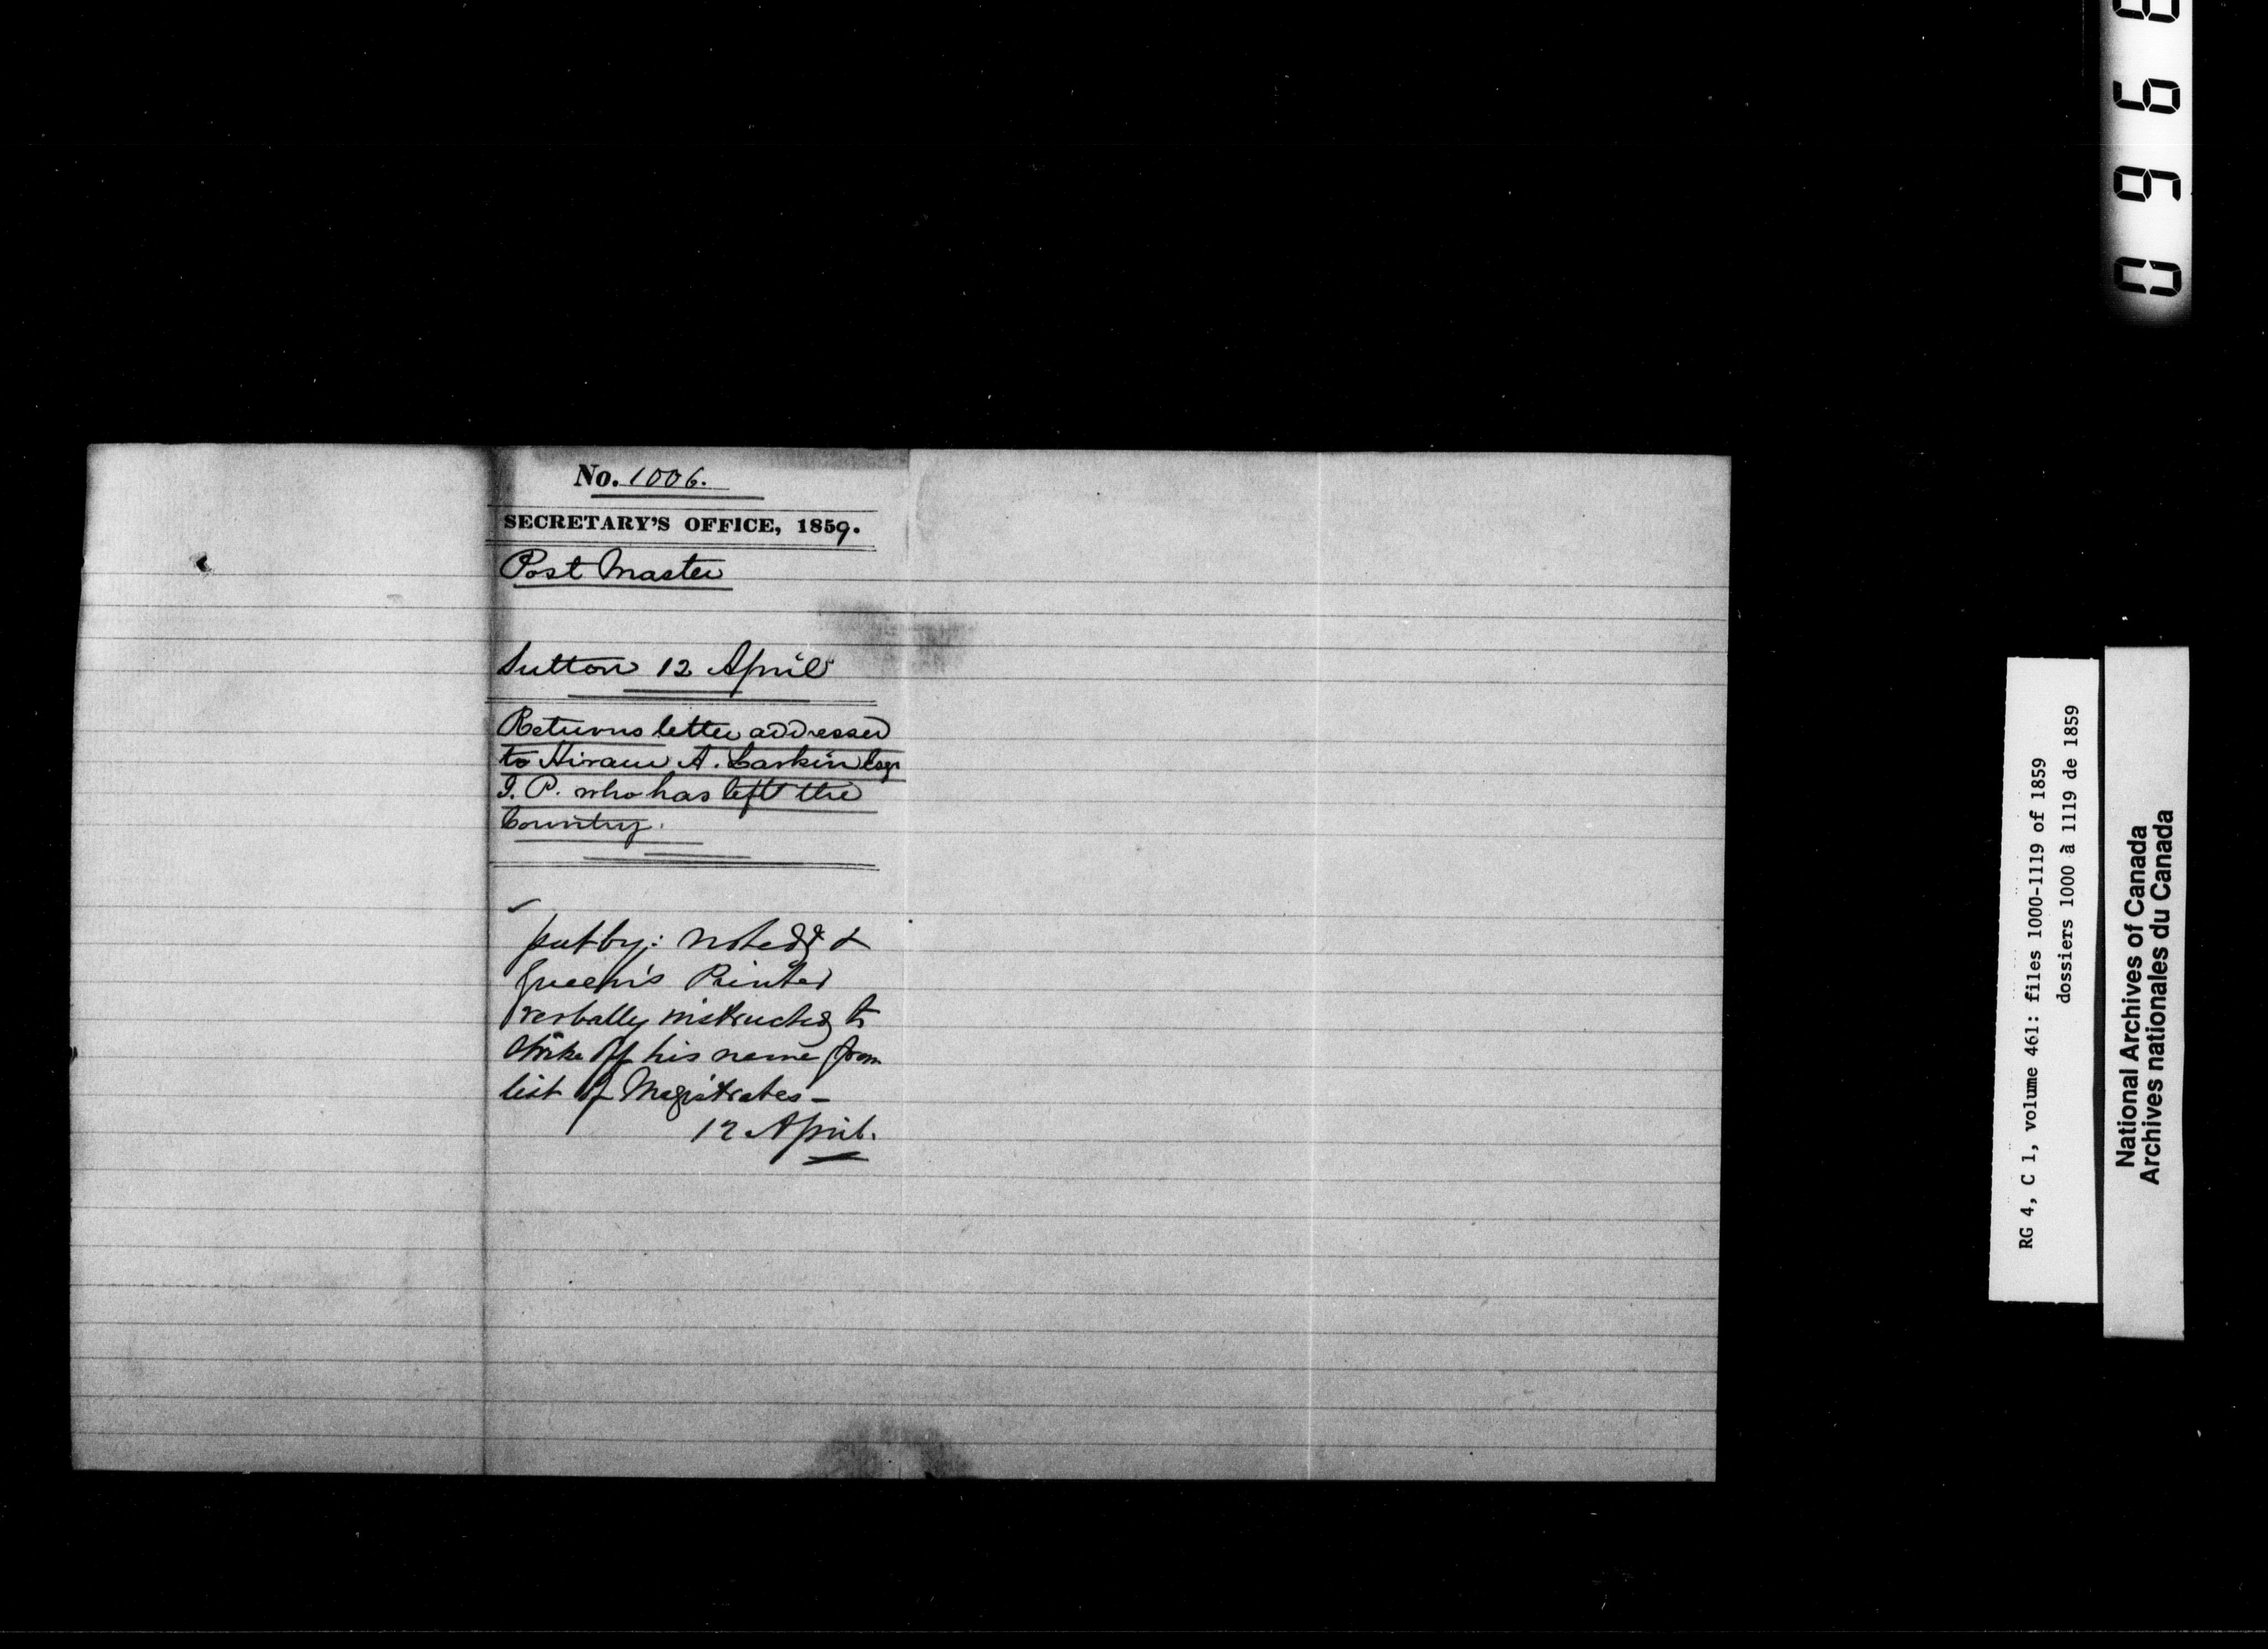 No. 1006.
SECRETARY'S OFFICE, 1859.
Post Master
Sutton 12 April
Returns letter addressed
to Hiram A. Larkin Esqr
J. P. who has left the
Country.
put by: noted & 
Queen's Printer
verbally instructed to
strike off his name from
list of Magistrates -
12 April.
RG 4, C 1, volume 461: files 1000-1119 of 1859
dossiers 1000 à 1119 de 1859
National Archives of Canada
Archives nationales du Canada